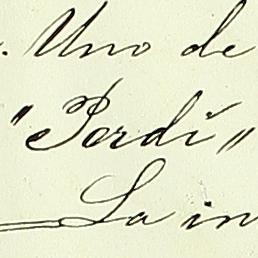 . Uno de
"Perdí"
La in